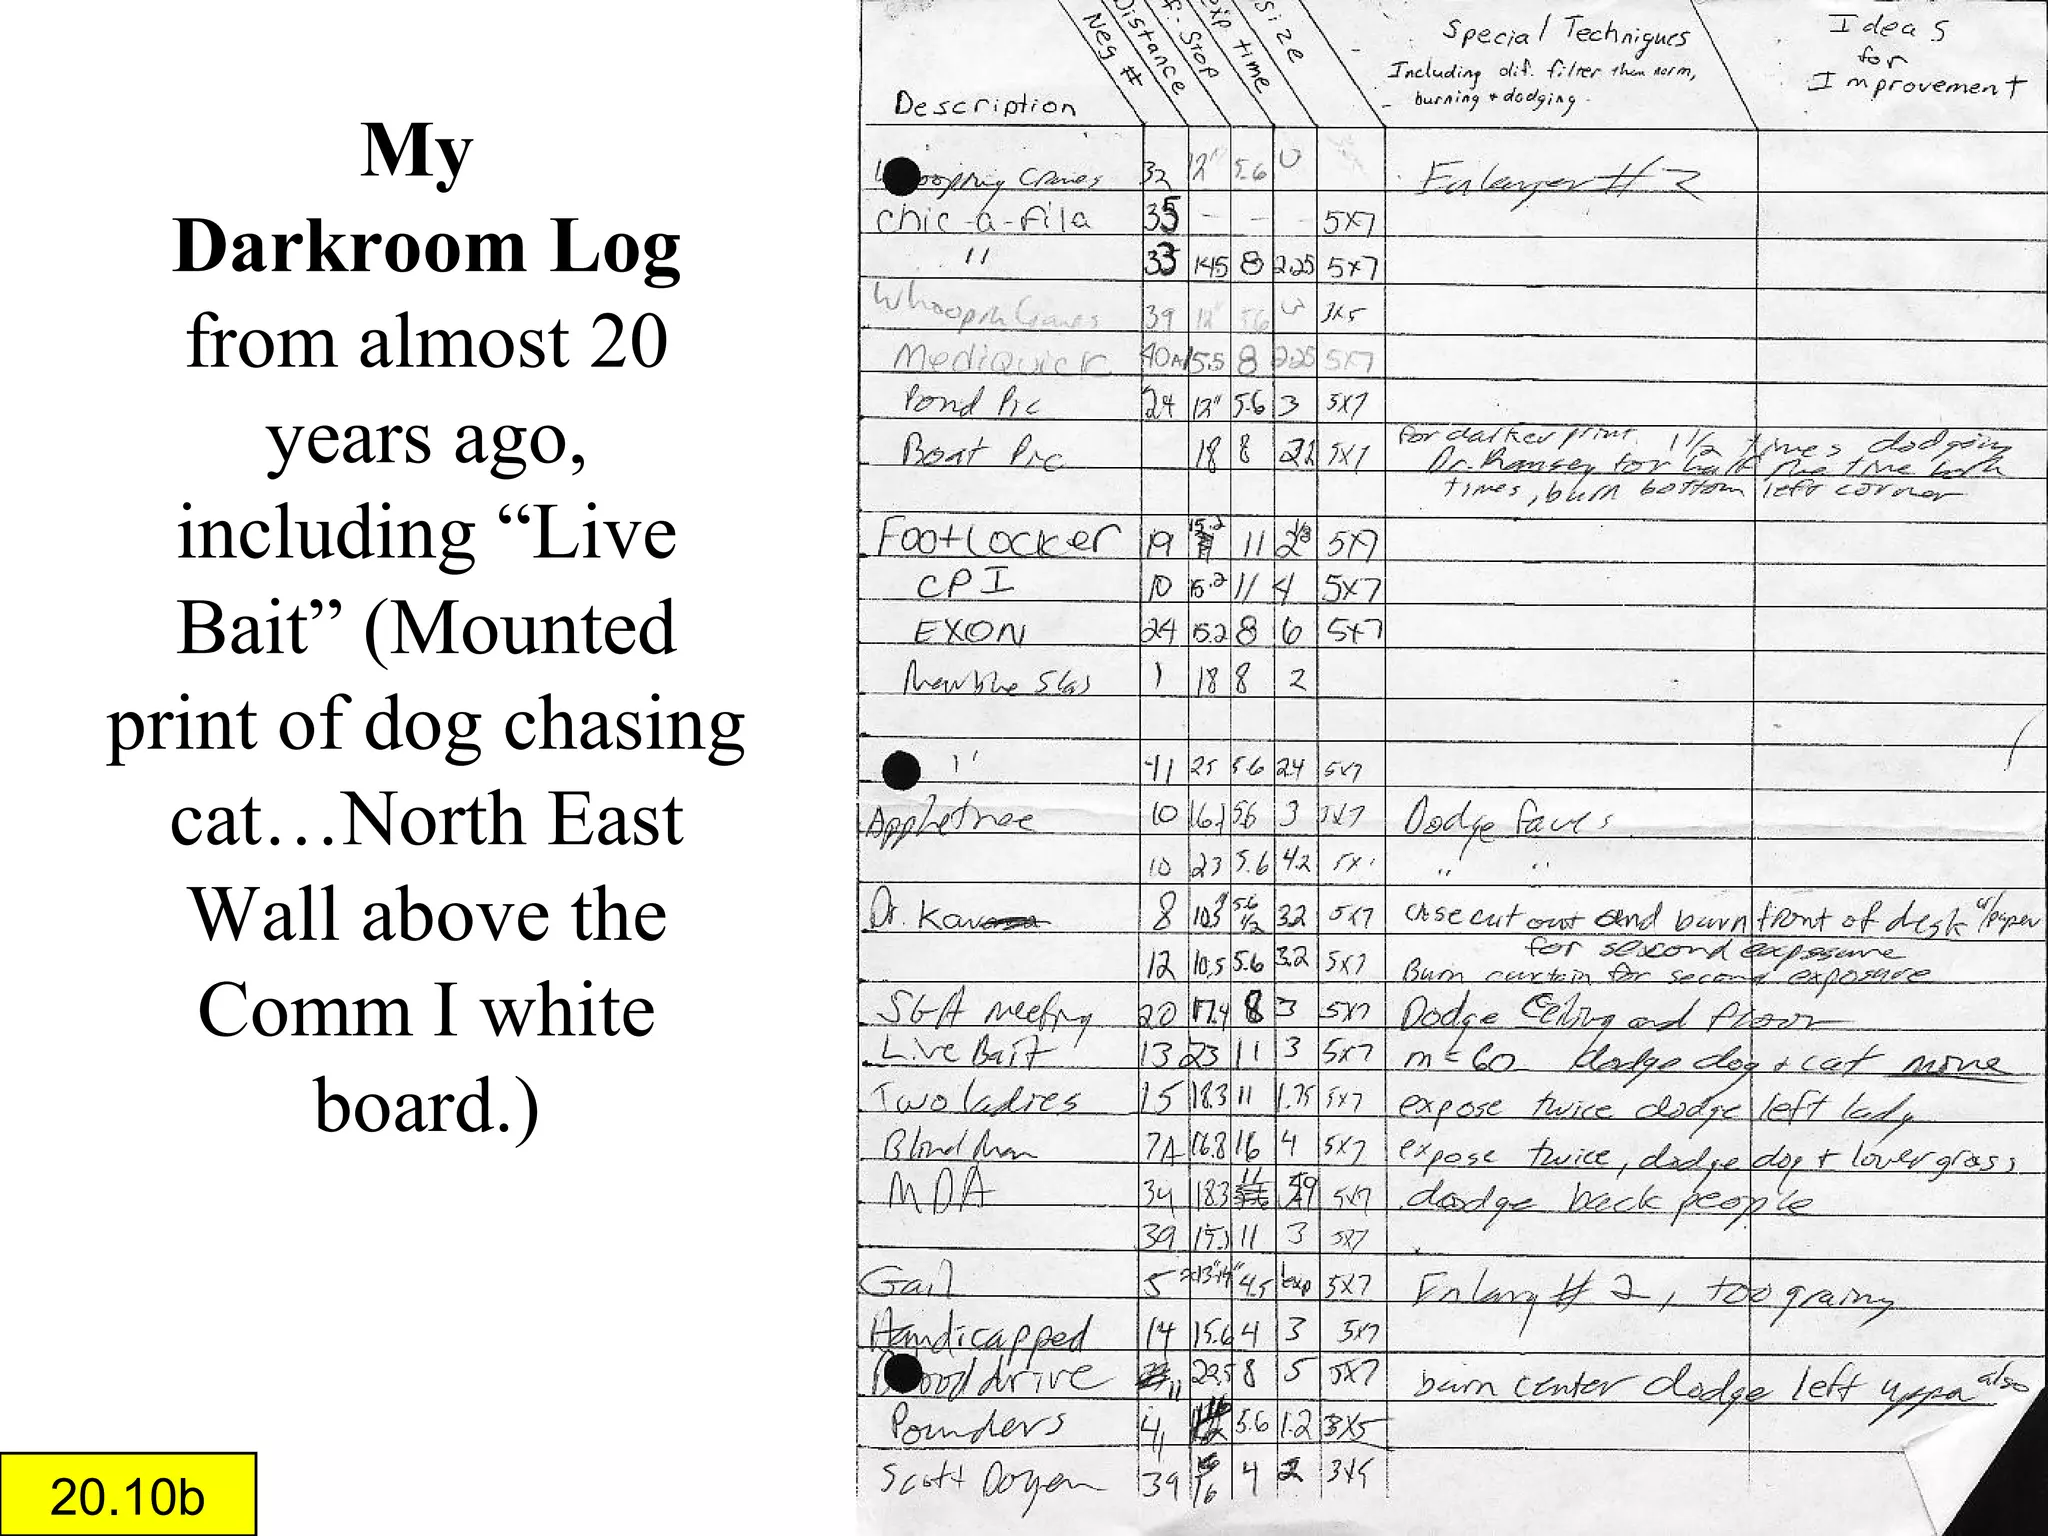 My
Darkroom Log
from almost 20
years ago,
including “Live
Bait” (Mounted
print of dog chasing
cat…North East
Wall above the
Comm I white
board.)
20.10b
Description Neg # Distance f. stop exp time size Special Techniques Ideas
Including dif. filter than norm, for
burning + dodging Improvement
Whooping Cranes 32 12" 5.6 Enlarger # 2
Chic-a-fila 35 - - - 5x7
" 35 14.5 8 2.25 5x7
39 12" 5.6 3x5
MediQuick 40A 15.5 8 2.25 5x7
Pond Pic 24 12" 5.6 3 5x7
Boat Pic 18 8 5x7 For darker print 1 1/2 times dodging
Dr. Ramsey for half the time
times, burn bottom left corner
Footlocker 19 15.2 11 5x7
CPI 10 15.2 11 4 5x7
EXON 24 15.2 8 6 5x7
1 18 8 2
" 25 5.6 24 5x7
Appletree 10 5.6 3 5x7 Dodge faces
10 23 5.6 4.2 " "
Dr. 8 5.6 1/2 3.2 5x7 cut out and burn front of desk w/paper
for second exposure
12 10.5 5.6 3.2 5x7 Burn curtain for second exposure
SGA meeting 20 17.4 8 3 5x7 Dodge Ceiling and floor
Live Bait 13 23 11 3 5x7 m = 60 dodge dog + cat more
Two ladies 15 18.3 11 1.75 5x7 expose twice dodge left lady
Blind Man 7A 16.8 16 4 5x7 expose twice, dodge dog + lower grass
MDA 34 18.3 11 5x7 dodge back people
39 11 3 5x7
Gail 5 4.5 exp 5x7 Enlarg # 2, too grainy
Handicapped 14 15.6 4 3 5x7
Blood drive 11 22.5 8 5 5x7 burn center dodge left upper also
Pounders 5.6 1.2 3x5
Scott 39 16 4 2 3x5